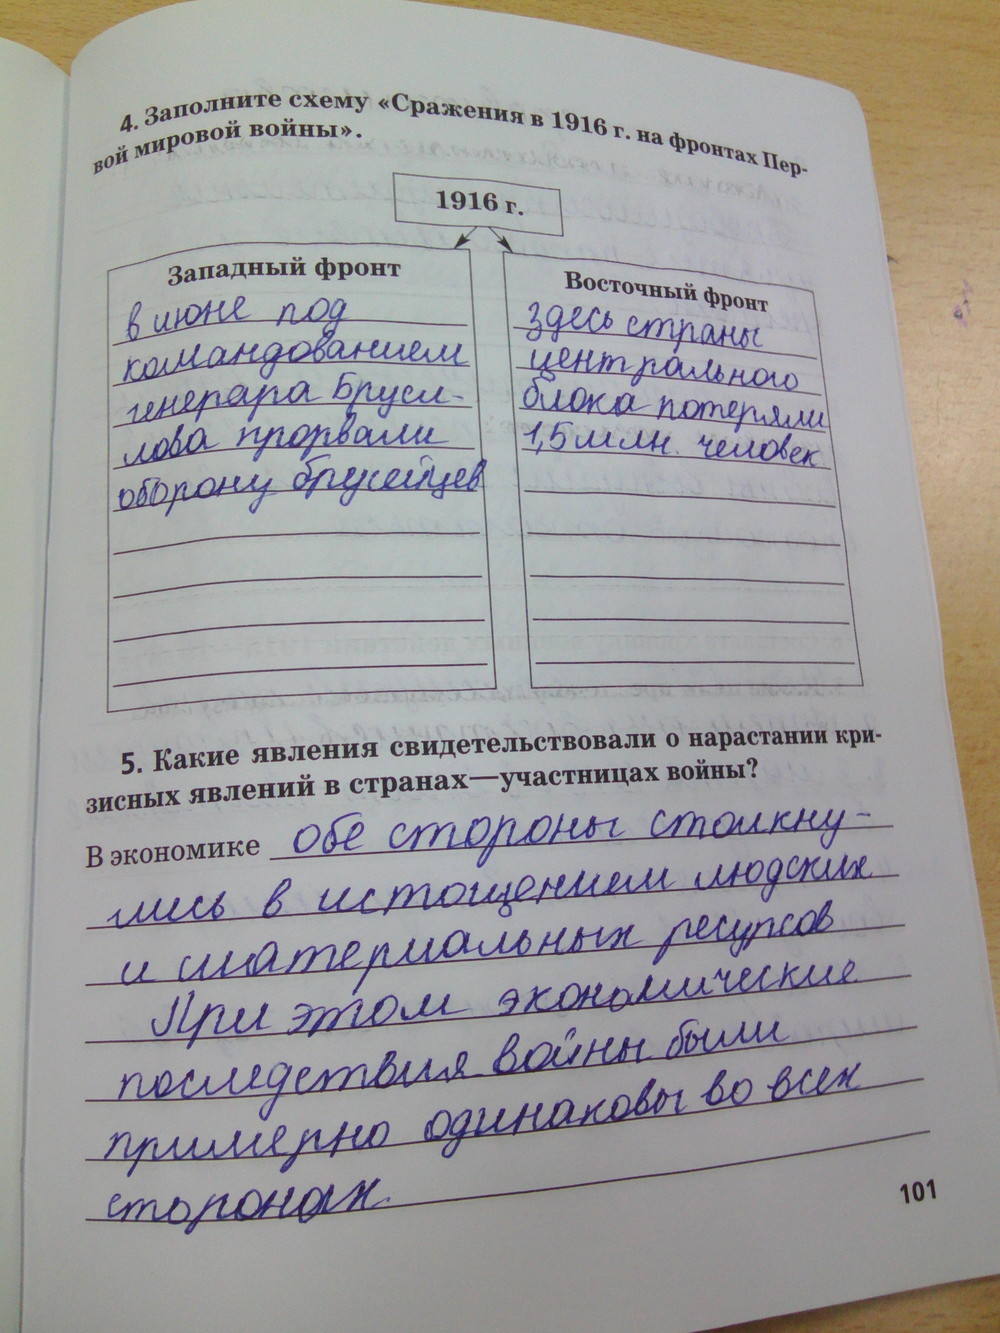 4. Заполните схему «Сражения в 1916 г. на фронтах Пер-
вой мировой войны».
1916 г.
Западный фронт
в июне под
командованием
генерара Брусл-
лова прорвали
оборону брусейцев
Восточный фронт
здесь страны
центрального
блока потеряли
1,5 млн. человек
5. Какие явления свидетельствовали о нарастании кри-
зисных явлений в странах—участницах войны?
В экономике обе стороны столкну-
лись в истощением людских
и материальных ресурсов
При этом экономические
последствия войны были
примерно одинаковы во всех
сторонах.
101